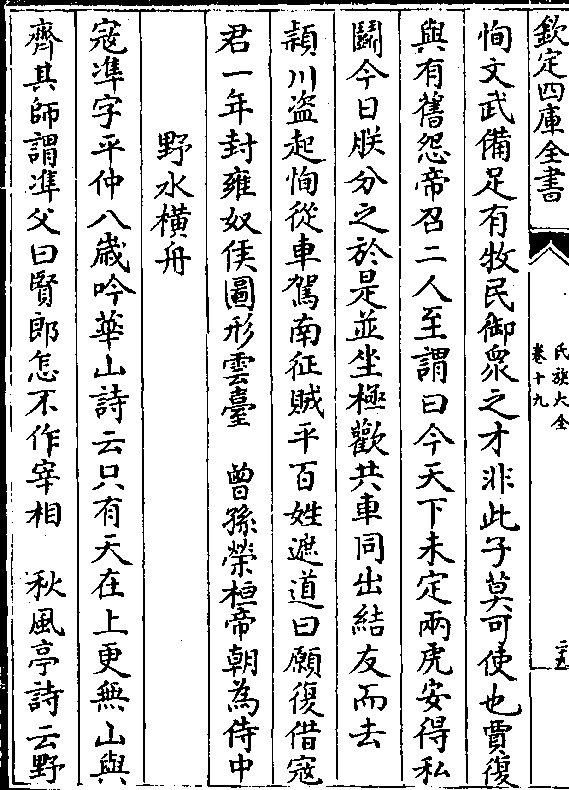 欽定四庫全書
氏族大全
卷十九
二十五
恂文武備足有牧民御衆之才非此子莫可使也賈復
與有舊怨帝召二人至謂曰今天下未定兩虎安得私
鬭今日朕分之於是並坐極歡共車同出結友而去
潁川盗起恂從車駕南征賊平百姓遮道曰願復借寇
君一年封雍奴侯圖形雲臺　曾孫榮桓帝朝為侍中
野水横舟
寇準字平仲八歳吟華山詩云只有天在上更無山與
齊其師謂準父曰賢郎怎不作宰相　秋風亭詩云野